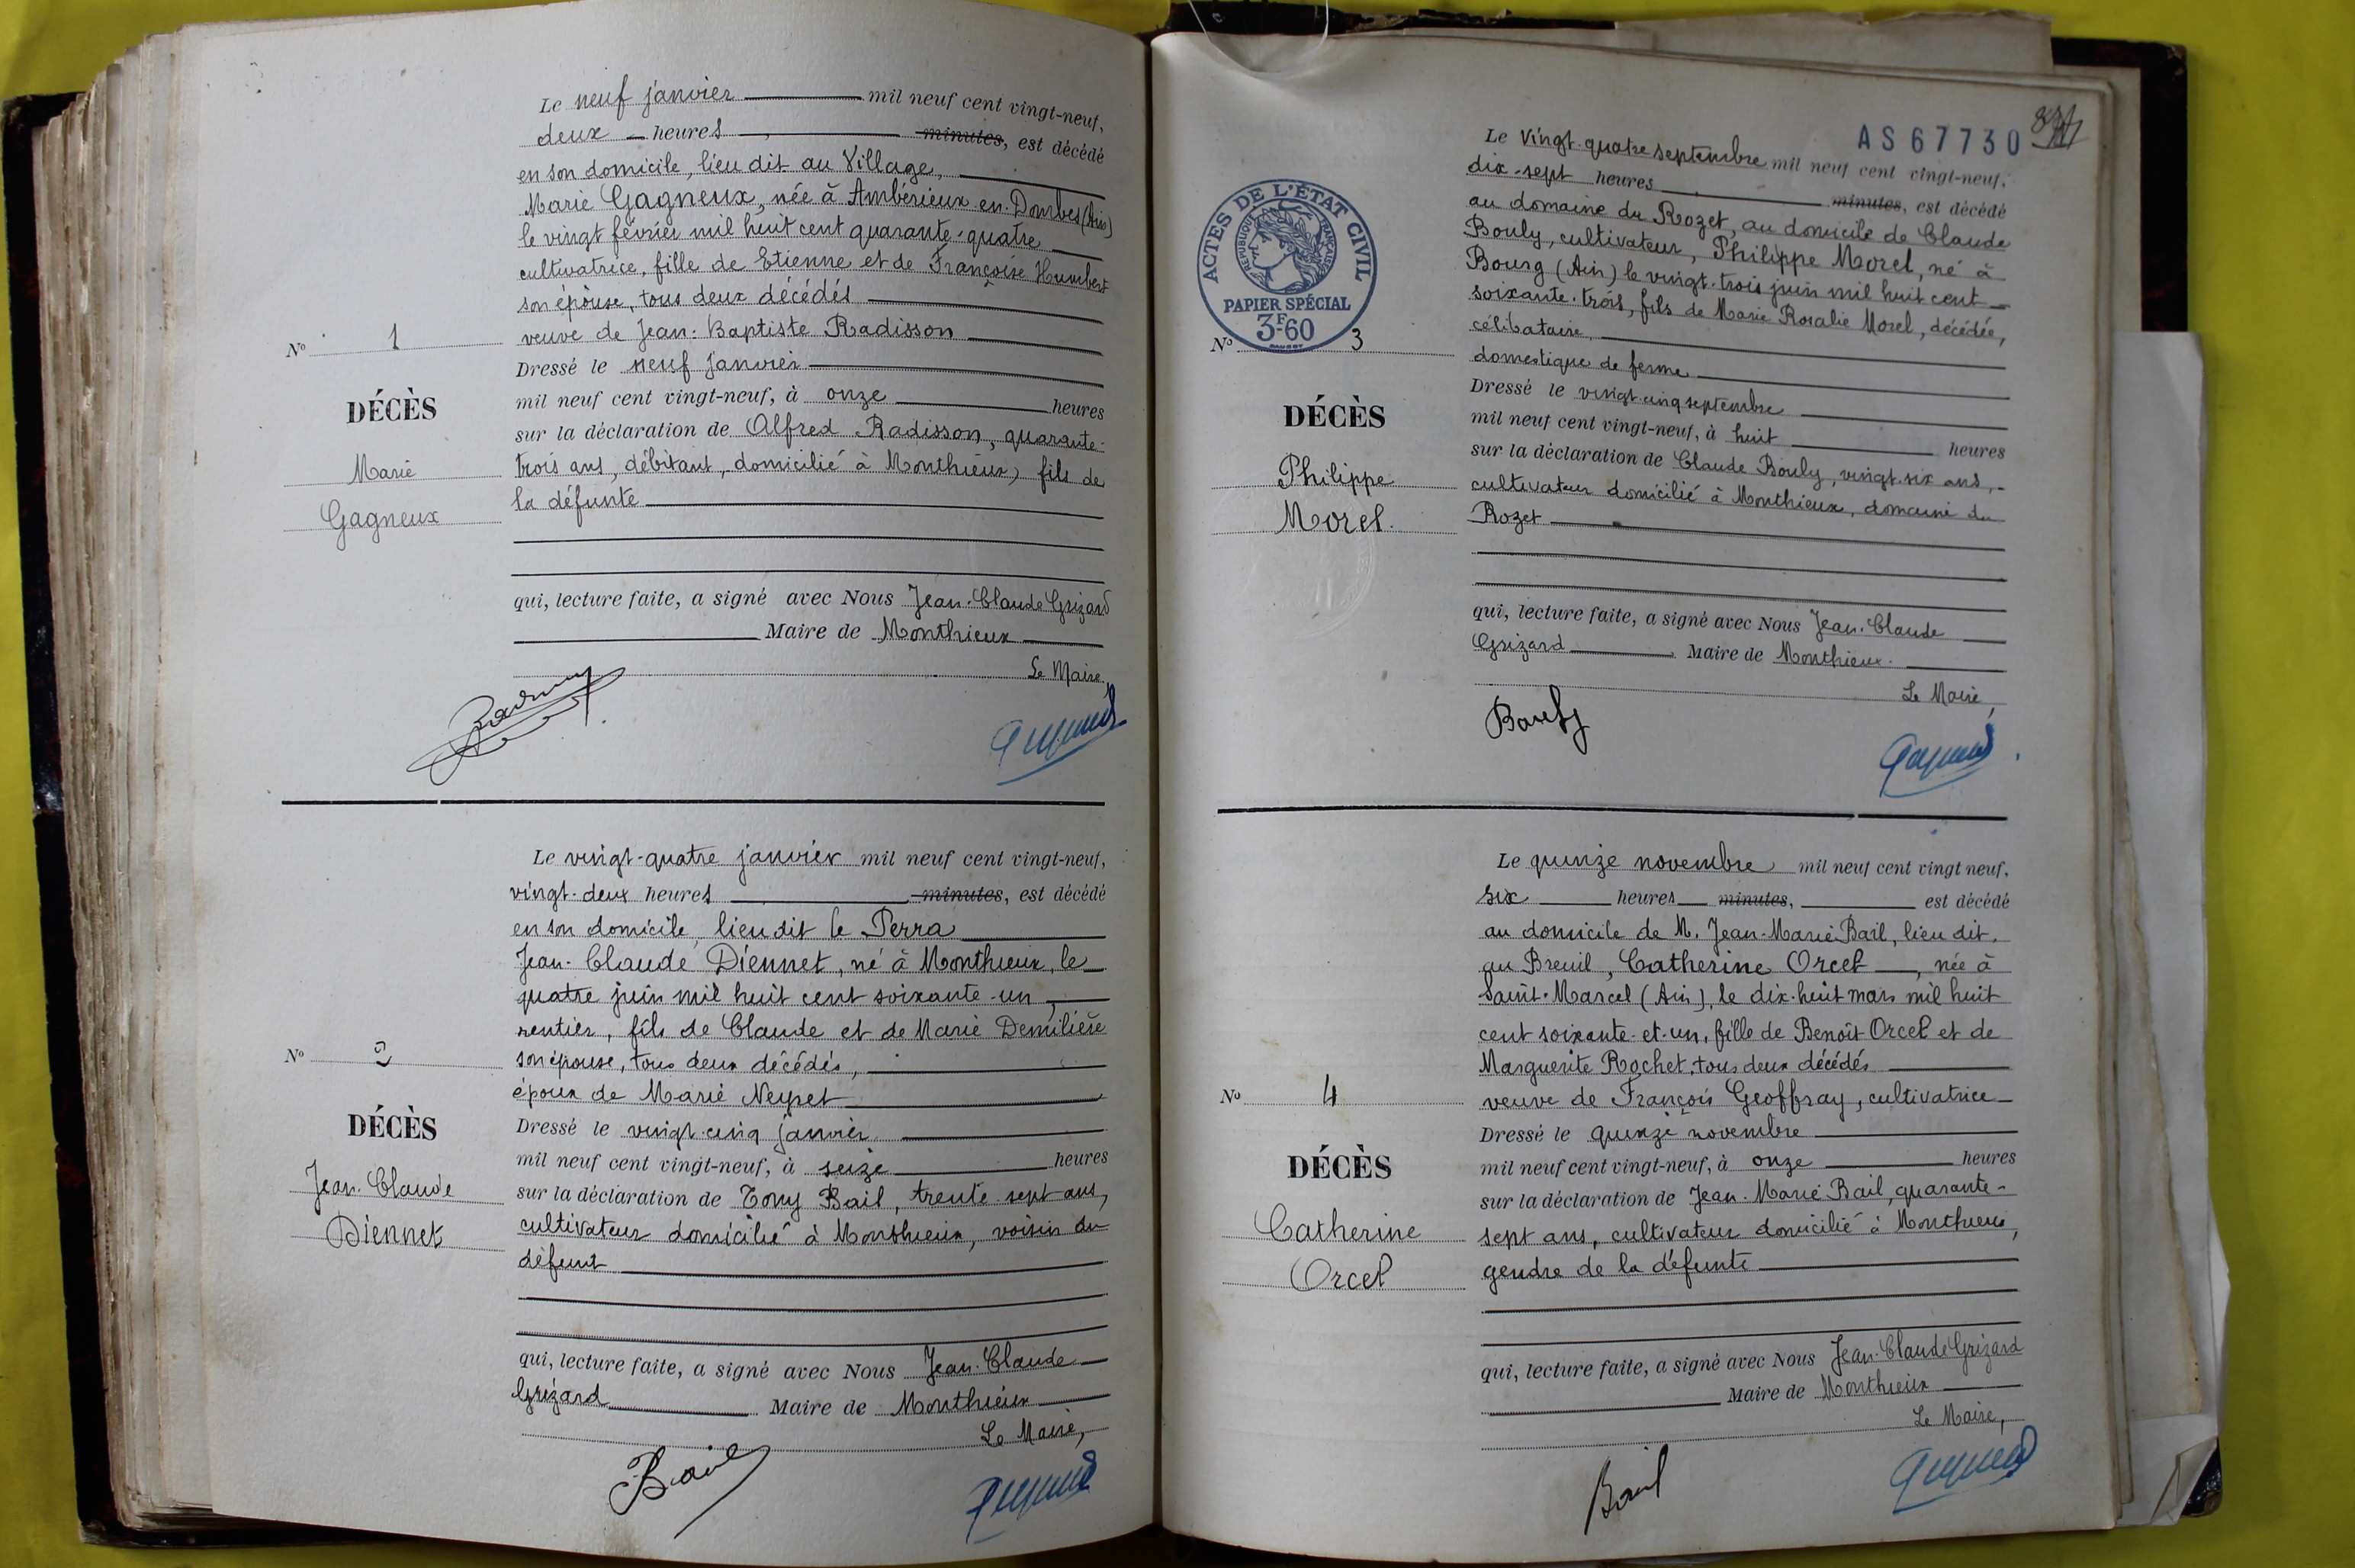 Le neuf janvier mil neuf cent vingt-neuf,
deux heures minutes, est décédé
en son domicile, lieu dit au Village,
Marie Gagneux, née à Ambérieux-en-Dombes (Ain)
le vingt février mil huit cent quarante-quatre
cultivatrice, fille de Etienne et de Françoise Humbert
son épouse, tous deux décédés
veuve de Jean-Baptiste Radisson
Dressé le neuf janvier
mil neuf cent vingt-neuf, à onze heures
sur la déclaration de Alfred Radisson, quarante-
trois ans, débitant, domicilié à Monthieux, fils de
la défunte
qui, lecture faite, a signé avec Nous Jean-Claude Grizard
Maire de Monthieux
Le Maire,
No 1
DÉCÈS
Marie
Gagneux
Le vingt-quatre janvier mil neuf cent vingt-neuf,
vingt-deux heures minutes, est décédé
en son domicile, lieu dit le Perra
Jean-Claude Diennet, né à Monthieux, le
quatre juin mil huit cent soixante-un,
rentier, fils de Claude et de Marie Demilière
son épouse, tous deux décédés,
époux de Marie Neyret
Dressé le vingt-cinq janvier
mil neuf cent vingt-neuf, à seize heures
sur la déclaration de Tony Bail, trente-sept ans,
cultivateur domicilié à Monthieux, voisin du
défunt
qui, lecture faite, a signé avec Nous Jean-Claude
Grizard Maire de Monthieux
Le Maire,
Bail
No 2
DÉCÈS
Jean-Claude
Diennet
AS67730
ACTES DE L'ÉTAT CIVIL
RÉPUBLIQUE FRANÇAISE
PAPIER SPÉCIAL
3F60
Le vingt-quatre septembre mil neuf cent vingt-neuf,
dix-sept heures minutes, est décédé
au domaine du Rozet, au domicile de Claude
Bouly, cultivateur, Philippe Morel, né à
Bourg (Ain) le vingt-trois juin mil huit cent
soixante-trois, fils de Marie Rosalie Morel, décédée,
célibataire,
domestique de ferme
Dressé le vingt-cinq septembre
mil neuf cent vingt-neuf, à huit heures
sur la déclaration de Claude Bouly, vingt-six ans,
cultivateur domicilié à Monthieux, domaine du
Rozet
qui, lecture faite, a signé avec Nous Jean-Claude
Grizard Maire de Monthieux.
Le Maire,
Bouly
No 3
DÉCÈS
Philippe
Morel.
Le quinze novembre mil neuf cent vingt neuf,
six heures minutes, est décédé
au domicile de M. Jean-Marie Bail, lieu dit
au Breuil, Catherine Orcel, née à
Saint-Marcel (Ain), le dix-huit mars mil huit
cent soixante-et-un, fille de Benoît Orcel et de
Marguerite Rochet, tous deux décédés
veuve de François Geoffray, cultivatrice
Dressé le quinze novembre
mil neuf cent vingt-neuf, à onze heures
sur la déclaration de Jean-Marie Bail, quarante-
sept ans, cultivateur domicilié à Monthieux,
gendre de la défunte
qui, lecture faite, a signé avec Nous Jean-Claude Grizard
Maire de Monthieux
Le Maire,
Bail
No 4
DÉCÈS
Catherine
Orcel